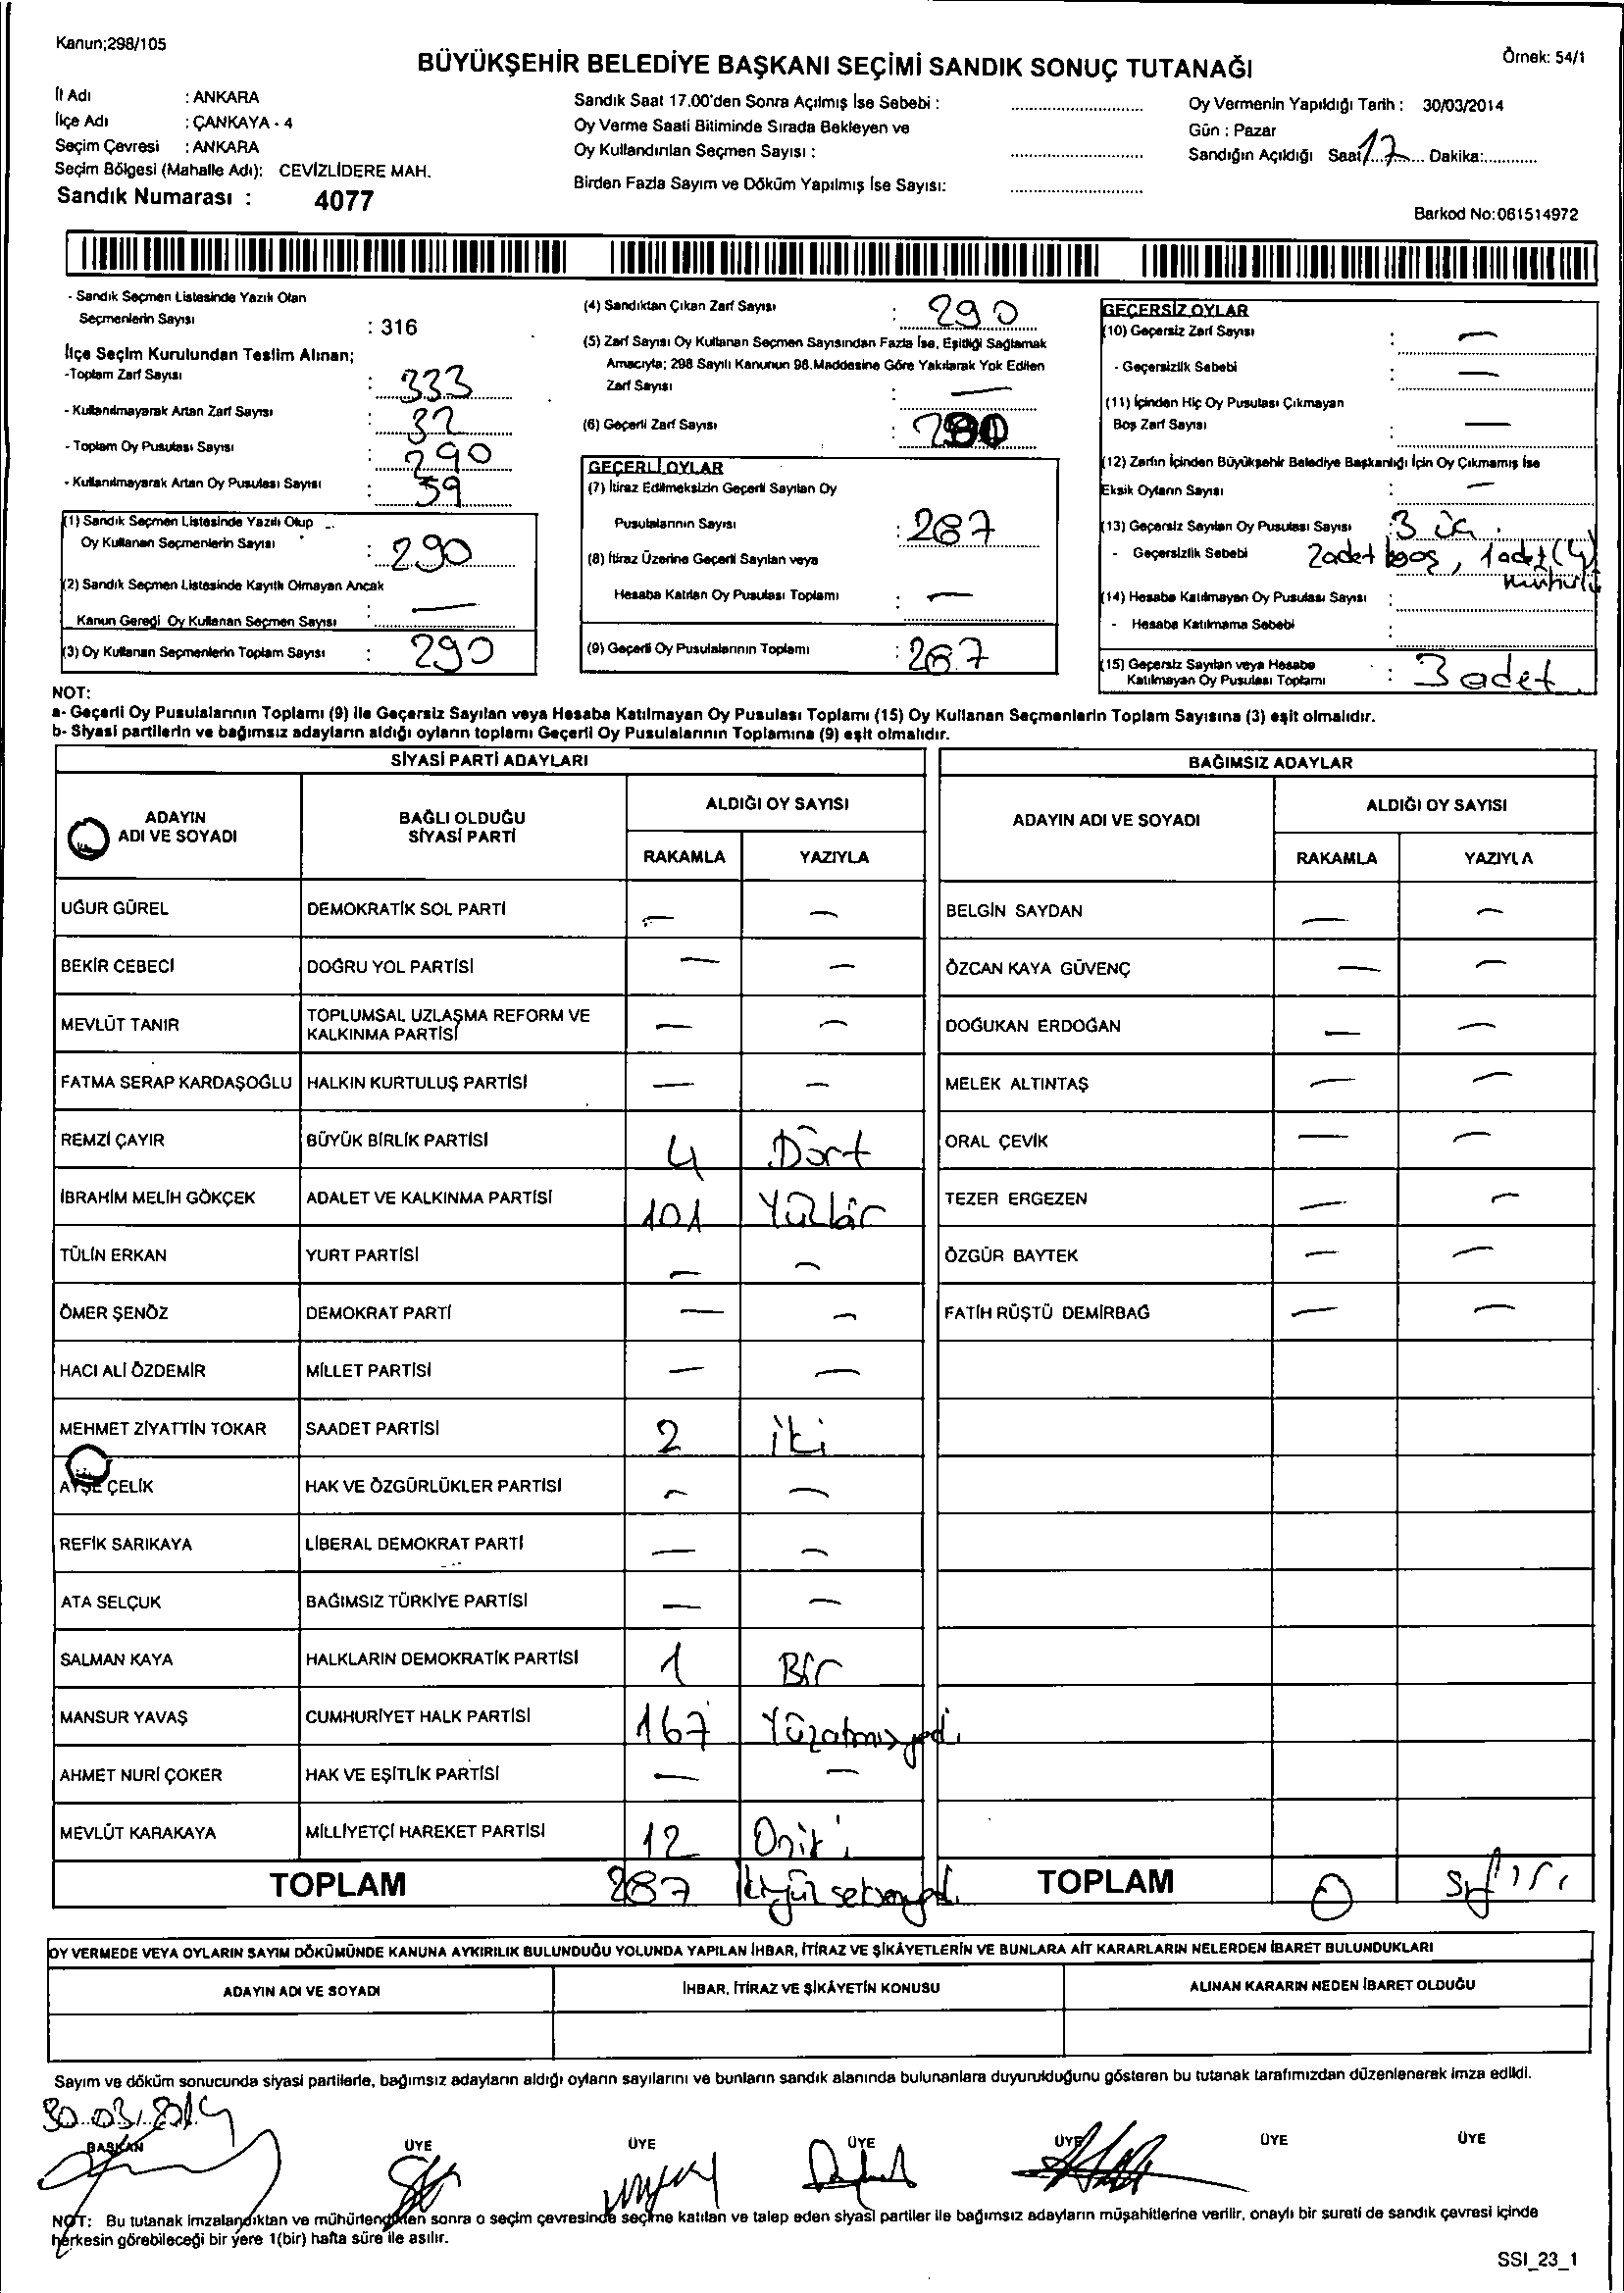 Kanun;298/105
Örnek: 54/1
BÜYÜKŞEHİR BELEDİYE BAŞKANI SEÇİMİ SANDIK SONUÇ TUTANAĞI
İl Adı : ANKARA
İlçe Adı : ÇANKAYA - 4
Seçim Çevresi : ANKARA
Seçim Bölgesi (Mahalle Adı): CEVİZLİDERE MAH.
Sandık Numarası : 4077
Sandık Saat 17.00'den Sonra Açılmış İse Sebebi :
Oy Verme Saati Bitiminde Sırada Bekleyen ve
Oy Kullandırılan Seçmen Sayısı :
Birden Fazla Sayım ve Döküm Yapılmış İse Sayısı:
Oy Vermenin Yapıldığı Tarih : 30/03/2014
Gün : Pazar
Sandığın Açıldığı Saat 17 Dakika:
Barkod No:061514972
- Sandık Seçmen Listesinde Yazılı Olan
Seçmenlerin Sayısı : 316
İlçe Seçim Kurulundan Teslim Alınan;
-Toplam Zarf Sayısı : 333
- Kullanılmayarak Artan Zarf Sayısı : 32
- Toplam Oy Pusulası Sayısı : 290
- Kullanılmayarak Artan Oy Pusulası Sayısı : 59
(1) Sandık Seçmen Listesinde Yazılı Olup
Oy Kullanan Seçmenlerin Sayısı : 290
(2) Sandık Seçmen Listesinde Kayıtlı Olmayan Ancak
Kanun Gereği Oy Kullanan Seçmen Sayısı : —
(3) Oy Kullanan Seçmenlerin Toplam Sayısı : 290
(4) Sandıktan Çıkan Zarf Sayısı : 290
(5) Zarf Sayısı Oy Kullanan Seçmen Sayısından Fazla İse, Eşitliği Sağlamak
Amacıyla; 298 Sayılı Kanunun 98.Maddesine Göre Yakılarak Yok Edilen
Zarf Sayısı : —
(6) Geçerli Zarf Sayısı :
GEÇERLİ OYLAR
(7) İtiraz Edilmeksizin Geçerli Sayılan Oy
Pusulalarının Sayısı : 287
(8) İtiraz Üzerine Geçerli Sayılan veya
Hesaba Katılan Oy Pusulası Toplamı : —
(9) Geçerli Oy Pusulalarının Toplamı : 287
GEÇERSİZ OYLAR
(10) Geçersiz Zarf Sayısı : —
- Geçersizlik Sebebi : —
(11) İçinden Hiç Oy Pusulası Çıkmayan
Boş Zarf Sayısı : —
(12) Zarfın İçinden Büyükşehir Belediye Başkanlığı İçin Oy Çıkmamış İse
Eksik Oyların Sayısı : —
(13) Geçersiz Sayılan Oy Pusulası Sayısı : 3 üç
- Geçersizlik Sebebi 2 adet boş, 1 adet (4)
mühürlü
(14) Hesaba Katılmayan Oy Pusulası Sayısı :
- Hesaba Katılmama Sebebi :
(15) Geçersiz Sayılan veya Hesaba
Katılmayan Oy Pusulası Toplamı : 3 adet
NOT:
a- Geçerli Oy Pusulalarının Toplamı (9) ile Geçersiz Sayılan veya Hesaba Katılmayan Oy Pusulası Toplamı (15) Oy Kullanan Seçmenlerin Toplam Sayısına (3) eşit olmalıdır.
b- Siyasi partilerin ve bağımsız adayların aldığı oyların toplamı Geçerli Oy Pusulalarının Toplamına (9) eşit olmalıdır.
SİYASİ PARTİ ADAYLARI
ADAYIN ADI VE SOYADI BAĞLI OLDUĞU SİYASİ PARTİ ALDIĞI OY SAYISI
RAKAMLA YAZIYLA
UĞUR GÜREL DEMOKRATİK SOL PARTİ — —
BEKİR CEBECİ DOĞRU YOL PARTİSİ — —
MEVLÜT TANIR TOPLUMSAL UZLAŞMA REFORM VE KALKINMA PARTİSİ — —
FATMA SERAP KARDAŞOĞLU HALKIN KURTULUŞ PARTİSİ — —
REMZİ ÇAYIR BÜYÜK BİRLİK PARTİSİ 4 Dört
İBRAHİM MELİH GÖKÇEK ADALET VE KALKINMA PARTİSİ 101 Yüzbir
TÜLİN ERKAN YURT PARTİSİ — —
ÖMER ŞENÖZ DEMOKRAT PARTİ — —
HACI ALİ ÖZDEMİR MİLLET PARTİSİ — —
MEHMET ZİYATTİN TOKAR SAADET PARTİSİ 2 iki
AYŞE ÇELİK HAK VE ÖZGÜRLÜKLER PARTİSİ — —
REFİK SARIKAYA LİBERAL DEMOKRAT PARTİ — —
ATA SELÇUK BAĞIMSIZ TÜRKİYE PARTİSİ — —
SALMAN KAYA HALKLARIN DEMOKRATİK PARTİSİ 1 Bir
MANSUR YAVAŞ CUMHURİYET HALK PARTİSİ 167 Yüzatmışyedi
AHMET NURİ ÇOKER HAK VE EŞİTLİK PARTİSİ — —
MEVLÜT KARAKAYA MİLLİYETÇİ HAREKET PARTİSİ 12 Oniki
TOPLAM 287 ikiyüzseksenyedi
BAĞIMSIZ ADAYLAR
ADAYIN ADI VE SOYADI ALDIĞI OY SAYISI
RAKAMLA YAZIYLA
BELGİN SAYDAN — —
ÖZCAN KAYA GÜVENÇ — —
DOĞUKAN ERDOĞAN — —
MELEK ALTINTAŞ — —
ORAL ÇEVİK — —
TEZER ERGEZEN — —
ÖZGÜR BAYTEK — —
FATİH RÜŞTÜ DEMİRBAĞ — —
TOPLAM 0 sıfır
OY VERMEDE VEYA OYLARIN SAYIM DÖKÜMÜNDE KANUNA AYKIRILIK BULUNDUĞU YOLUNDA YAPILAN İHBAR, İTİRAZ VE ŞİKÂYETLERİN VE BUNLARA AİT KARARLARIN NELERDEN İBARET BULUNDUKLARI
ADAYIN ADI VE SOYADI İHBAR, İTİRAZ VE ŞİKÂYETİN KONUSU ALINAN KARARIN NEDEN İBARET OLDUĞU
Sayım ve döküm sonucunda siyasi partilerle, bağımsız adayların aldığı oyların sayılarını ve bunların sandık alanında bulunanlara duyurulduğunu gösteren bu tutanak tarafımızdan düzenlenerek imza edildi.
30.03.2014
BAŞKAN ÜYE ÜYE ÜYE ÜYE ÜYE ÜYE
NOT: Bu tutanak imzalandıktan ve mühürlendikten sonra o seçim çevresinde seçime katılan ve talep eden siyasi partiler ile bağımsız adayların müşahitlerine verilir, onaylı bir sureti de sandık çevresi içinde
herkesin görebileceği bir yere 1(bir) hafta süre ile asılır.
SSI_23_1